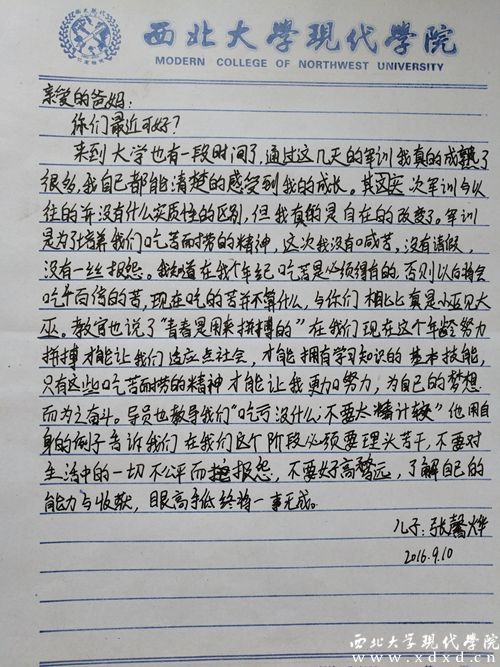 西北大學現代學院
MODERN COLLEGE OF NORTHWEST UNIVERSITY
亲爱的爸妈：
你们最近可好？
来到大学也有一段时间了，通过这几天的军训我真的成熟了
很多，我自己都能清楚的感受到我的成长。其实 次军训与以
往的并没有什么实质性的区别，但我真的是自在的改变了。军训
是为了培养我们吃苦而捞的精神，这次我没有喊苦，没有请假，
没有一丝报怨。我知道在我个年纪吃苦是必须得有的，否则以后将会
吃千百倍的苦，现在吃的苦并不算什么，与你们相比真是小巫见大
巫。教官也说了“青春是用来拼搏的”在我们现在这个年龄努力
拼搏才能让我们适应点社会，才能拥有学习知识的基本技能，
只有这些吃苦而劳的精神才能让我更加努力，为自己的梦想
而为之奋斗。导员也教导我们“吃亏没什么；不要太精计较”他用自
身的例子告诉我们在我们这个阶段必须要埋头苦干，不要对
生活中的一切不公平而报怨，不要好高骛远，了解自己的
能力与收获，眼高手低终将一事无成。
儿子：张馨烨
2016.9.10
西北大学现代学院
www.xdxd.cn